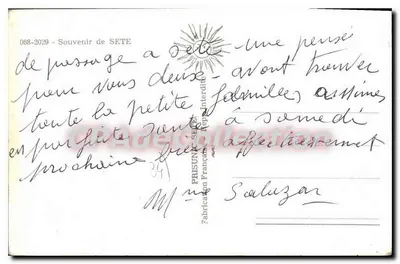 068-2029 - Souvenir de SETE
de passage a sete une pensé
pour vous deux - avont trouver
toute la petite famille
en parfaite santé à samedi
prochaine bien affectueusement
Mme
PRISUNIC
Fabrication Française Interdite